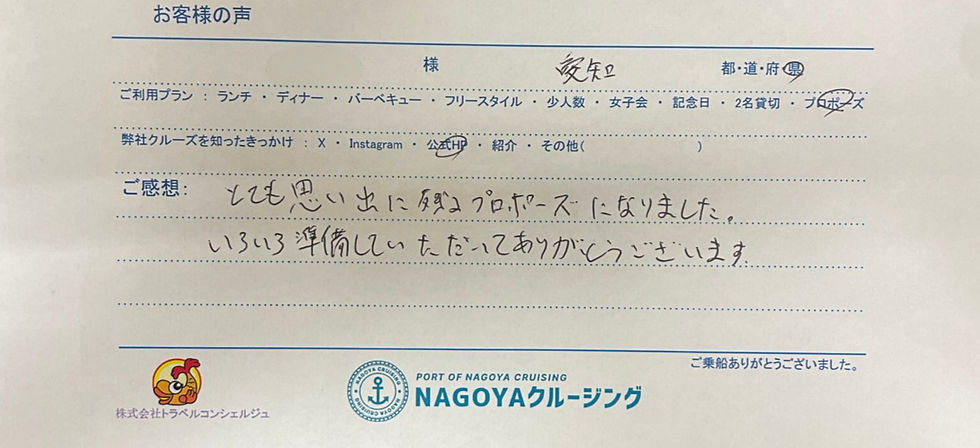 お客様の声
様 愛知 都・道・府・県
ご利用プラン : ランチ ・ ディナー ・ バーベキュー ・ フリースタイル ・ 少人数 ・ 女子会 ・ 記念日 ・ 2名貸切 ・ プロポーズ
弊社クルーズを知ったきっかけ : X ・ Instagram ・ 公式HP ・ 紹介 ・ その他( )
ご感想: とても思い出に残るプロポーズになりました。
いろいろ準備していただいてありがとうございます。
ご乗船ありがとうございました。
株式会社トラベルコンシェルジュ
NAGOYA CRUISING
PORT OF NAGOYA CRUISING
NAGOYAクルージング